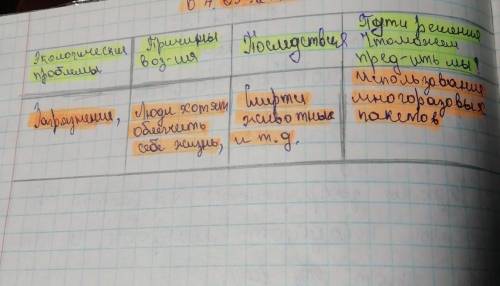 Экологические
проблемы
Причины
воз-ия
Последствия
Пути решения
Что можем
пред-ить мы?
Загрязнение,
Люди хотят
облегчить
себе жизнь,
Смерти
животных
и т.д.
использования
многоразовых
пакетов